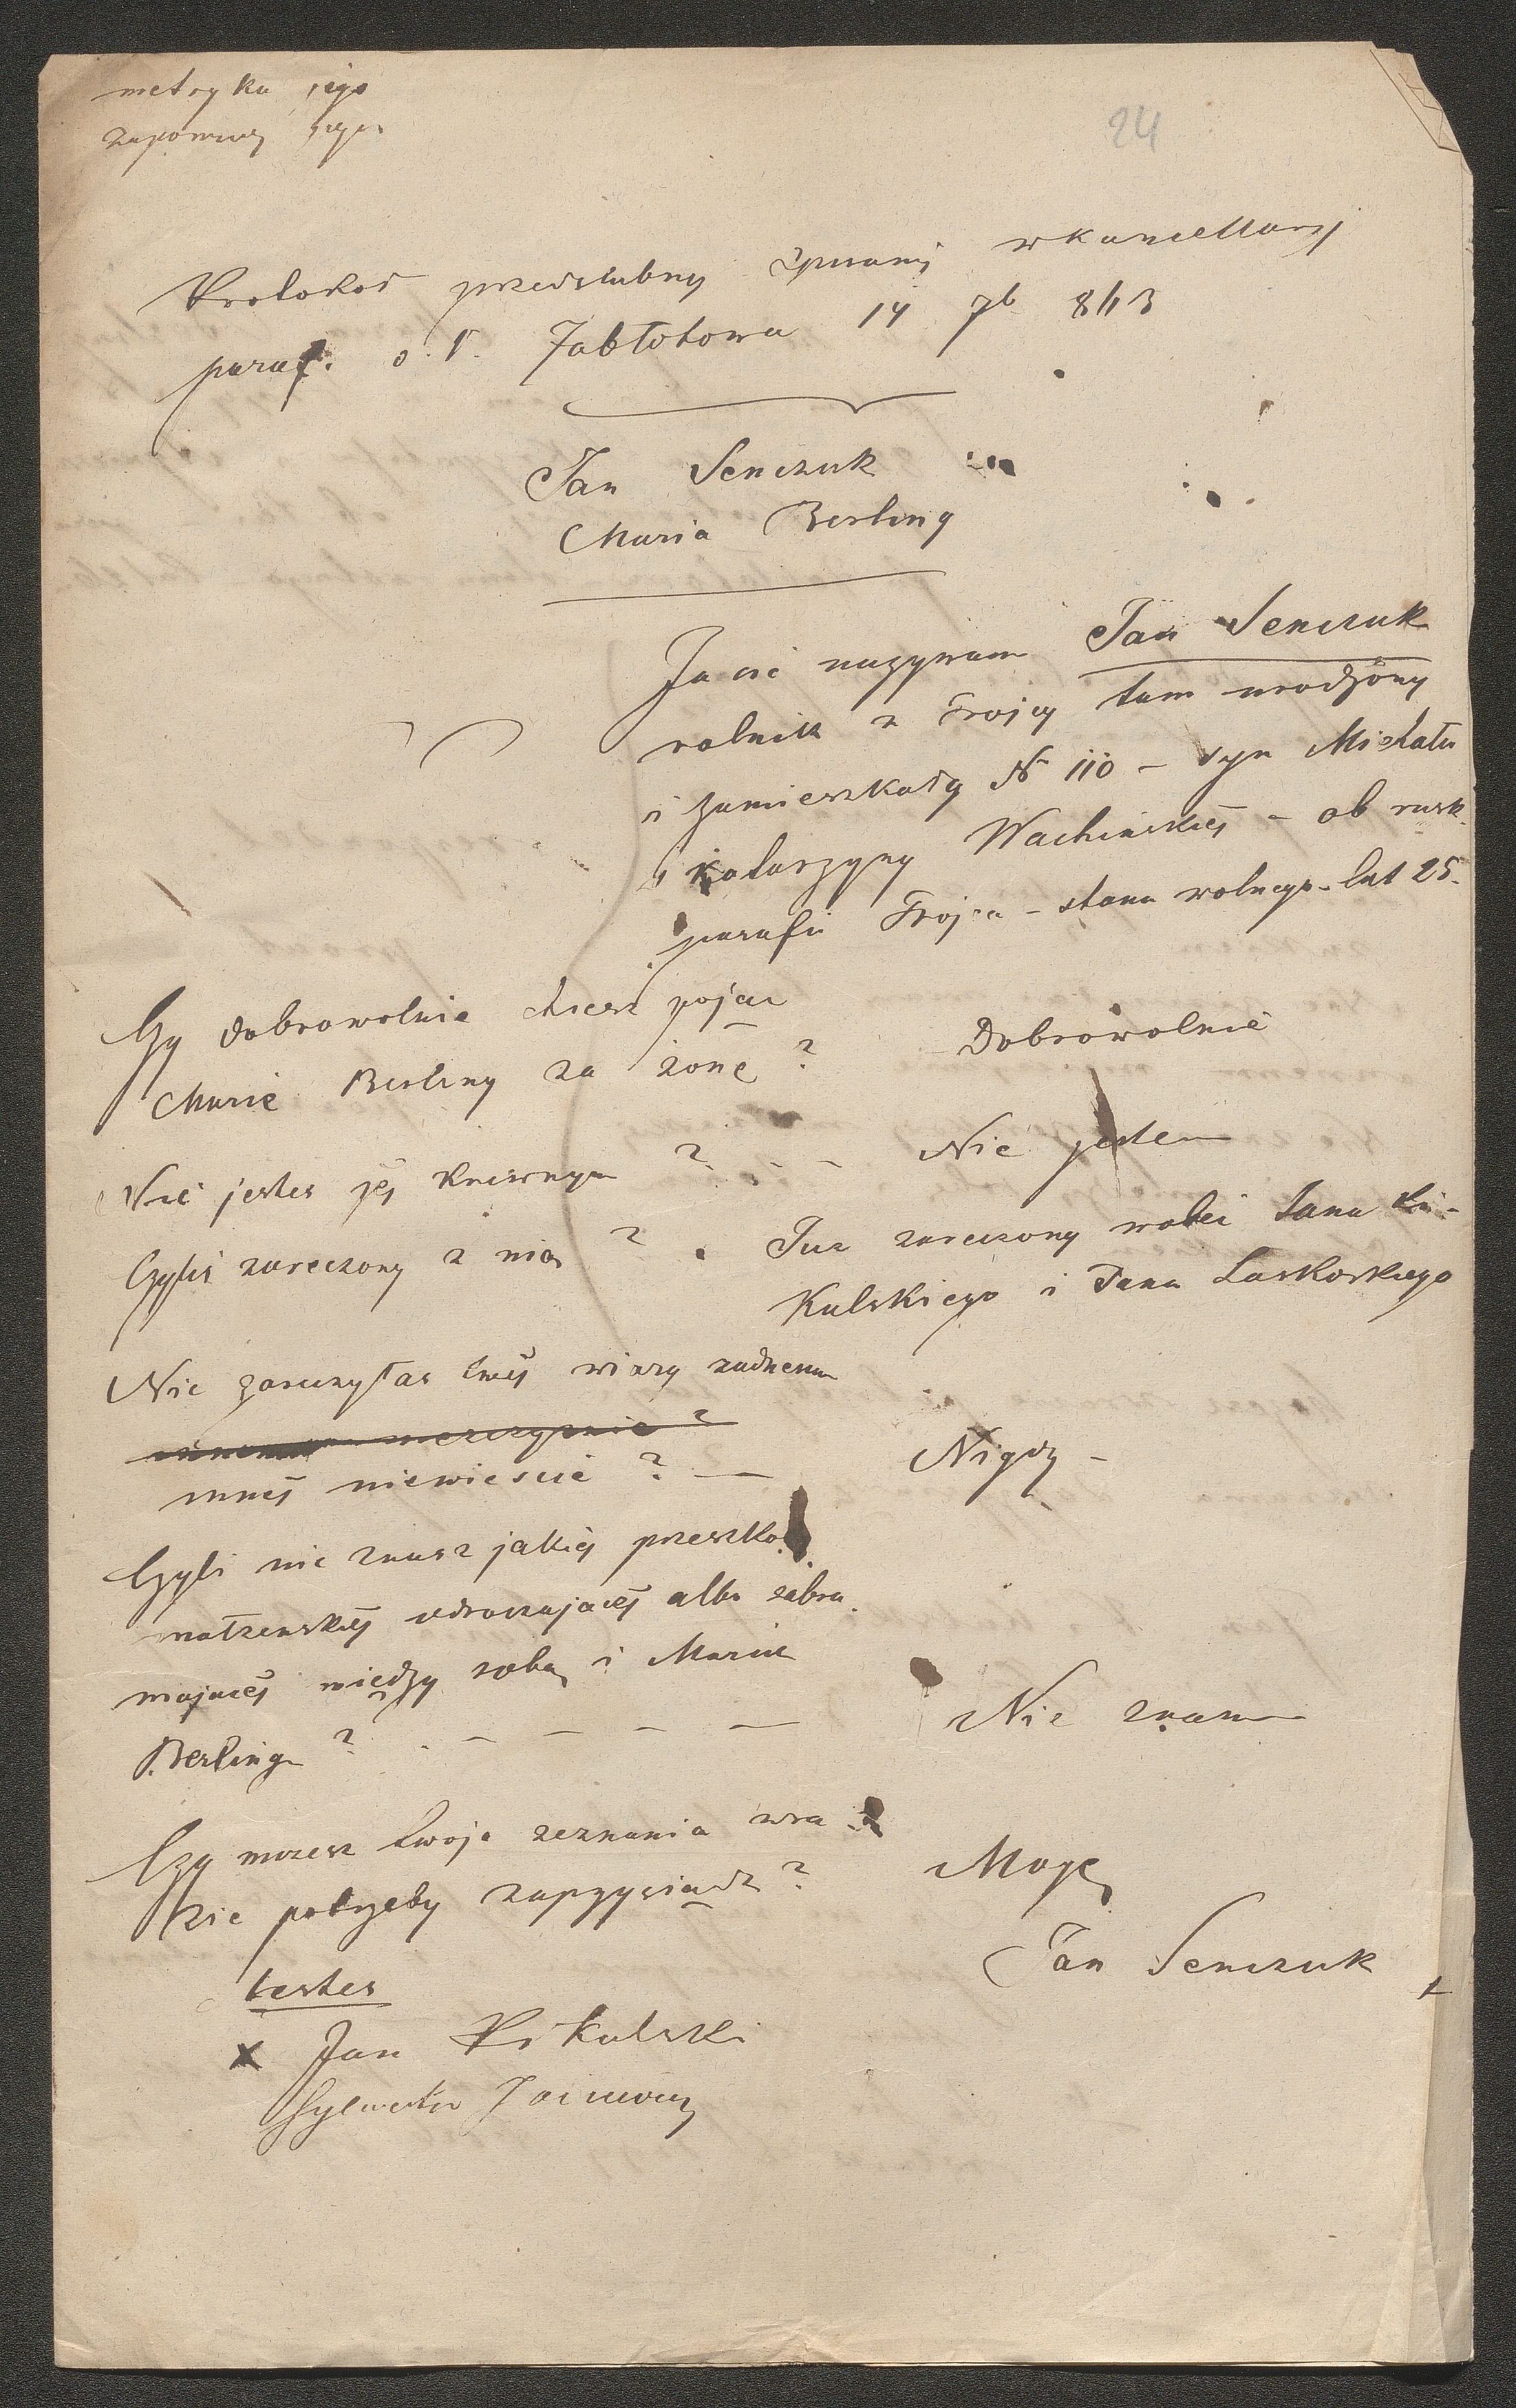 metryka jego
zapowiedzi jego
24
Protokoł przedslubny spisany w kancellaryi
paraf. o. ł. Zabłotowa 14 7b 893
Jan Senczuk
Maria Berling
Ja się nazywam Jan Senczuk
rolnik z Trojcy tam urodzony
i zamieszkały N 110 – syn Michała
i Katarzyny Wachińskiéj – ob rusk.
parafii Trojca – stanu wolnego – lat 25.
Czy dobrowolnie chcesz pojąc
Marię Berling za żonę ?
Dobrowolnie
Nie jestes jéj krewnym ? - -
Nie jestem
Czyliś zaręczony z nią ?
Juz zaręczony wobec Jana Pi-
kulskiego i Jana Laskoskiego
Nie zaręczyłas twéj wiary zadnemu
innéj niewiescie ? —
Nigdy –
Czyli nie znasz jakiéj przeszkody
małzenskiéj odraczającéj albo zabra
mającéj między sobą i Marią
Berling ? - - - - -
Nie znam
Czy mozesz twoje zeznania w ra
zie potrzeby zaprzysiądz ?
Mogę
Jan Senczuk +
testes
x Jan Pikulski